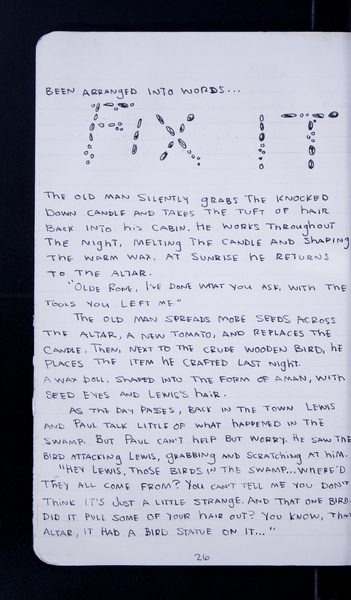 BEEN ARRANGED INTO WORDS...
FIX IT
THE OLD MAN SILENTLY GRABS THE KNOCKED
DOWN CANDLE AND TAKES THE TUFT OF HAIR
BACK INTO HIS CABIN. HE WORKS THROUGHOUT
THE NIGHT, MELTING THE CANDLE AND SHAPING
THE WARM WAX. AT SUNRISE HE RETURNS
TO THE ALTAR.
"OLDE RONE, I'VE DONE WHAT YOU ASK, WITH THE
TOOLS YOU LEFT ME."
THE OLD MAN SPREADS MORE SEEDS ACROSS
THE ALTAR, A NEW TOMATO, AND REPLACES THE
CANDLE. THEN, NEXT TO THE CRUDE WOODEN BIRD, HE
PLACES THE ITEM HE CRAFTED LAST NIGHT.
A WAX DOLL, SHAPED INTO THE FORM OF A MAN, WITH
SEED EYES AND LEWIS'S HAIR.
AS THE DAY PASSES, BACK IN THE TOWN LEWIS
AND PAUL TALK LITTLE OF WHAT HAPPENED IN THE
SWAMP. BUT PAUL CAN'T HELP BUT WORRY. HE SAW THE
BIRD ATTACKING LEWIS, GRABBING AND SCRATCHING AT HIM.
"HEY LEWIS, THOSE BIRDS IN THE SWAMP... WHERE'D
THEY ALL COME FROM? YOU CAN'T TELL ME YOU DON'T
THINK IT'S JUST A LITTLE STRANGE. AND THAT ONE BIRD.
DID IT PULL SOME OF YOUR HAIR OUT? YOU KNOW, THAT
ALTAR, IT HAD A BIRD STATUE ON IT..."
26